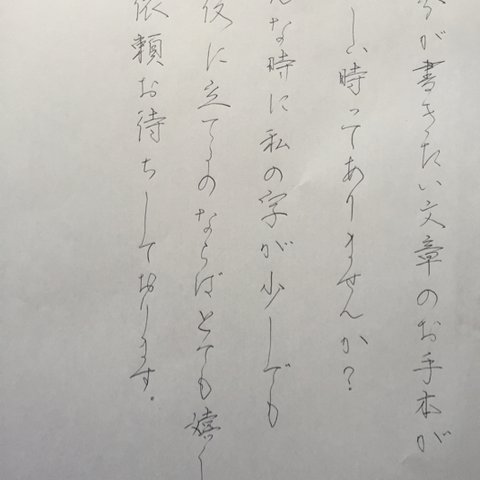 が書きたい文章のお手本が
しい時ってありませんか?
な時に私の字が少しでも
役に立てるのならばとても嬉し
依頼お待ちしております。